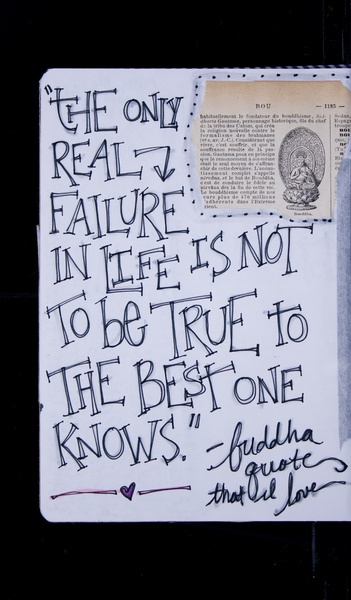 "THE ONLY
REAL
FAILURE
IN LIFE IS NOT
TO bE TRUE to
THE BEST ONE
KNOWS."
-buddha
quote
that i love
BOU
— 1185 —
habituellement le fondateur du bouddhisme, Sid-
dharta Gautama, personnage historique, fils du chef
de la tribu des Çakias, qui créa
la religion nouvelle contre le
formalisme des brahmanes
vivre, c'est souffrir, et que la
souffrance résulte de la pas-
sion, Gautama posa en principe
que le renoncement à soi-même
était le seul moyen de s'affran-
nirvâna, et le but de Bouddha,
est de conduire le fidèle au
nirvâna dès la fin de cette vie.
Le bouddhisme compte de nos
jours plus de 470 millions
d'adhérents dans l'Extrême
Orient.
Bouddha.